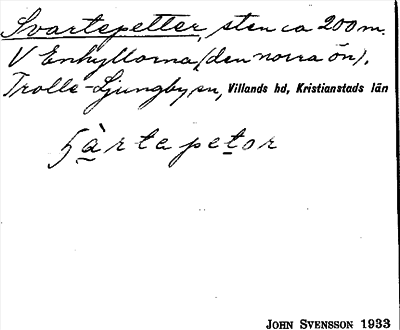 Svartepetter, sten ca 200 m.
V Enhyllorna (den norra ön).
Trolle-Ljungby sn, Villands hd, Kristianstads län
àrtepetor
JOHN SVENSSON 1933